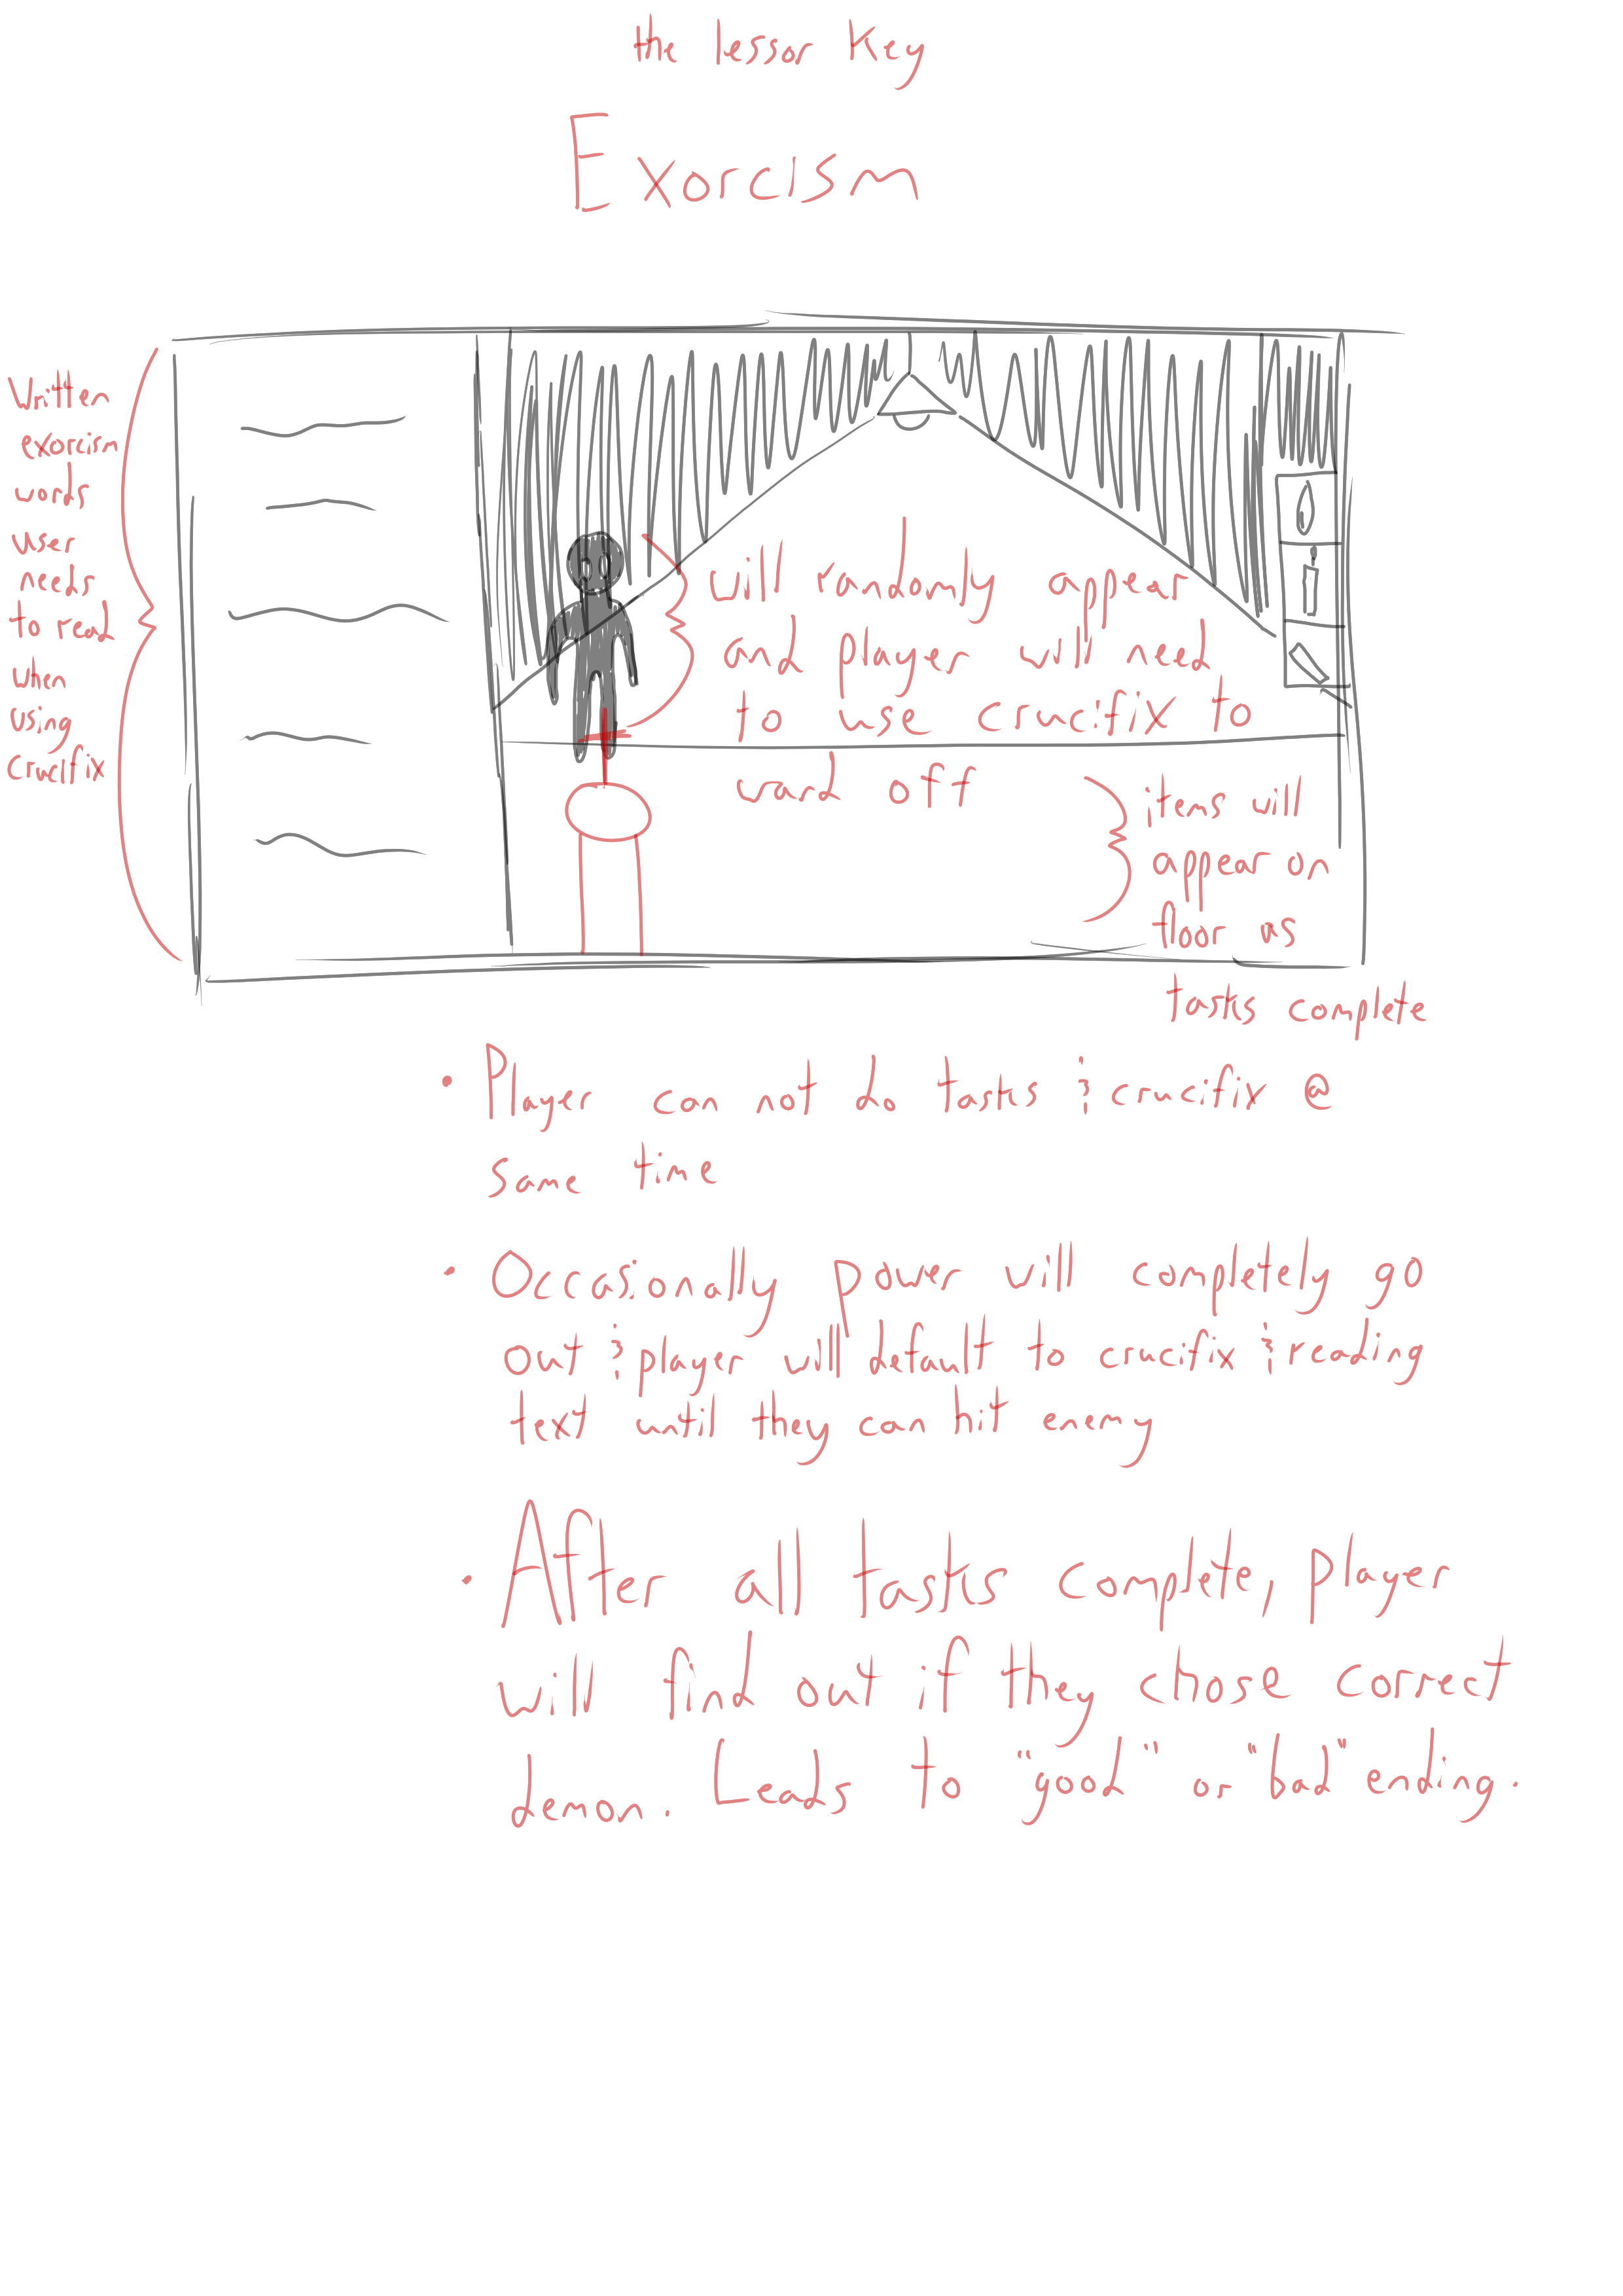 the lessor Key
Exorcism
Written
exorcism
words
user
needs
to read
when
using
crucifix
will randomly appear
and player will need
to use crucifix to
ward off
items will
appear on
floor as
tasks complete
• Player can not do tasks & crucifix @
same time
• Occasionally power will completely go
out & player will default to crucifix & reading
text until they can hit enemy
• After all tasks complete, player
will find out if they chose correct
demon. Leads to "good" or "bad" ending.